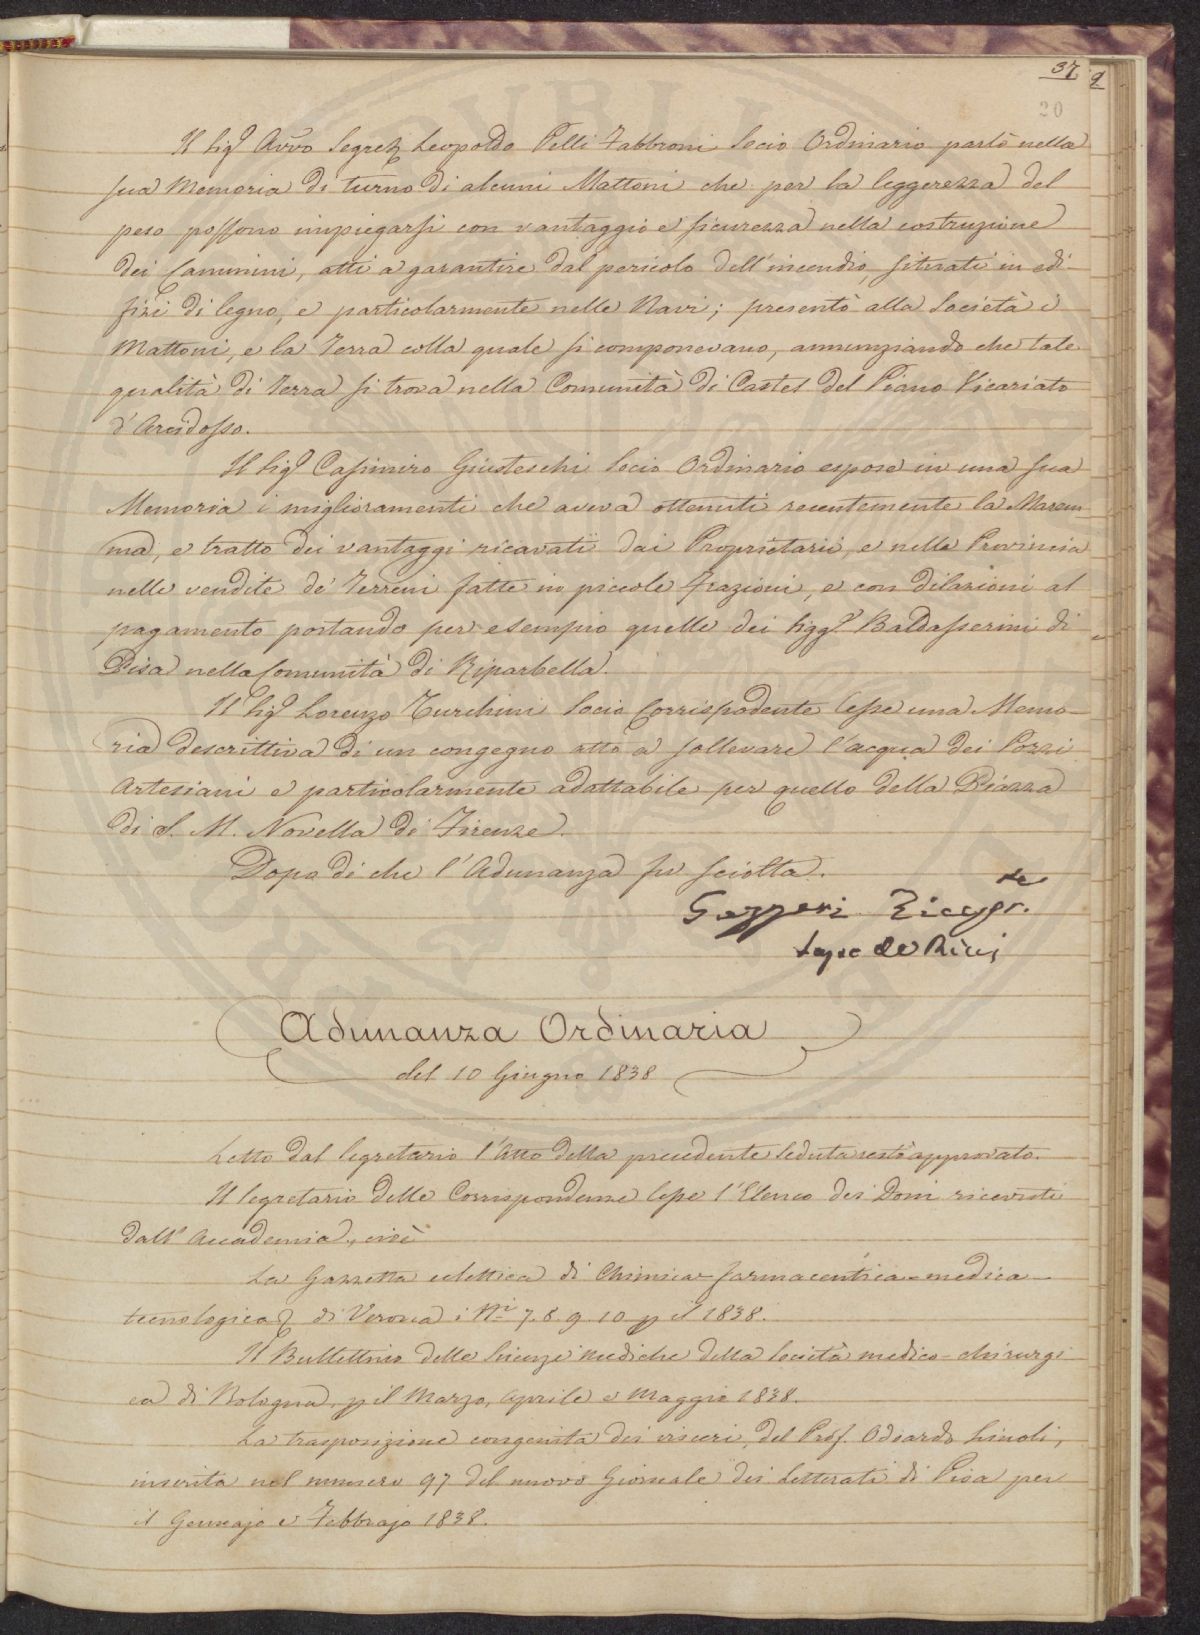 37 9
20
Il Sigr Avvo Segreto Leopoldo Pelli Fabbroni Socio Ordinario parlò nella
sua Memoria di turno di alcuni Mattoni che per la leggerezza del
peso possono impiegarsi con vantaggio e sicurezza nella costruzione
dei Cammini, atti a garantire dal pericolo dell'incendio, situati in edi-
fizi di legno, e particolarmente nelle Navi; presentò alla Società i
Mattoni, e la Terra colla quale si componevano, annunziando che tale
qualità di Terra si trova nella Comunità di Castel del Piano Vicariato
d'Arcidosso.
Il Sigr Casimiro Giusteschi Socio Ordinario espose in una sua
Memoria i miglioramenti che aveva ottenuti recentemente la Marem-
ma, e trattò dei vantaggi ricavati dai Proprietarii, e nella Provincia
nelle vendite de' Terreni fatte in piccole frazioni, e con dilazioni al
pagamento portando per esempio quelle dei Sigg.ri Baldasserini di
Pisa nella Comunità di Riparbella.
Il Sigr Lorenzo Turchini Socio Corrispodente lesse una Memo
ria descrittiva di un congegno atto a sollevare l'acqua dei Pozzi
Artesiani e particolarmente adattabile per quello della Piazza
di S. M. Novella di Firenze.
Dopo di che l'Adunanza fu sciolta.
Gazzeri
Lapo de Ricci
Adunanza Ordinaria
del 10 Giugno 1838
Letto dal Segretario l'Atto della precedente Seduta restò approvato.
Il Segretario delle Corrispondenze lesse l'Elenco dei Doni ricevuti
dall' Accademia, cioè
La Gazzetta eclettica di Chimica-farmaceutica-medica-
tecnologica di Verona i Ni 7. 8. 9. 10 p il 1838.
Il Bullettino delle Scienze mediche della Società medico-chirurgi
ca di Bologna, p il Marzo, Aprile e Maggio 1838.
La trasposizione congenita dei visceri, del Prof. Odoardo Linoli,
inserita nel numero 97 del nuovo Giornale dei Letterati di Pisa per
il Gennajo e Febbrajo 1838.